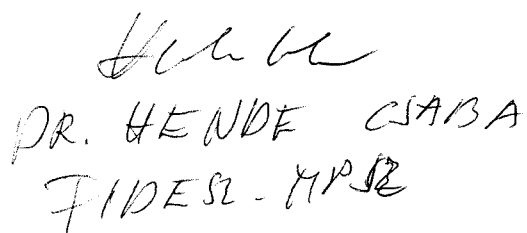 DR. HENDE CSABA
FIDESZ - MPSZ